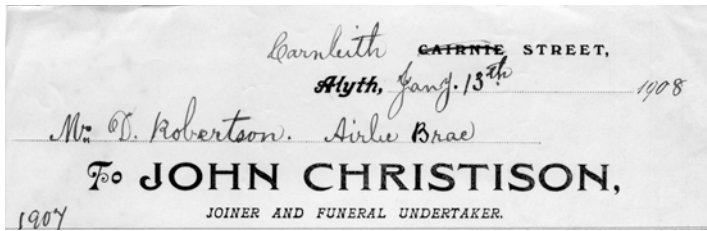 Carnleith CAIRNIE STREET,
Alyth, Jany. 13th 1908
Mr. D. Robertson. Airlie Brae
To JOHN CHRISTISON,
JOINER AND FUNERAL UNDERTAKER.
1907